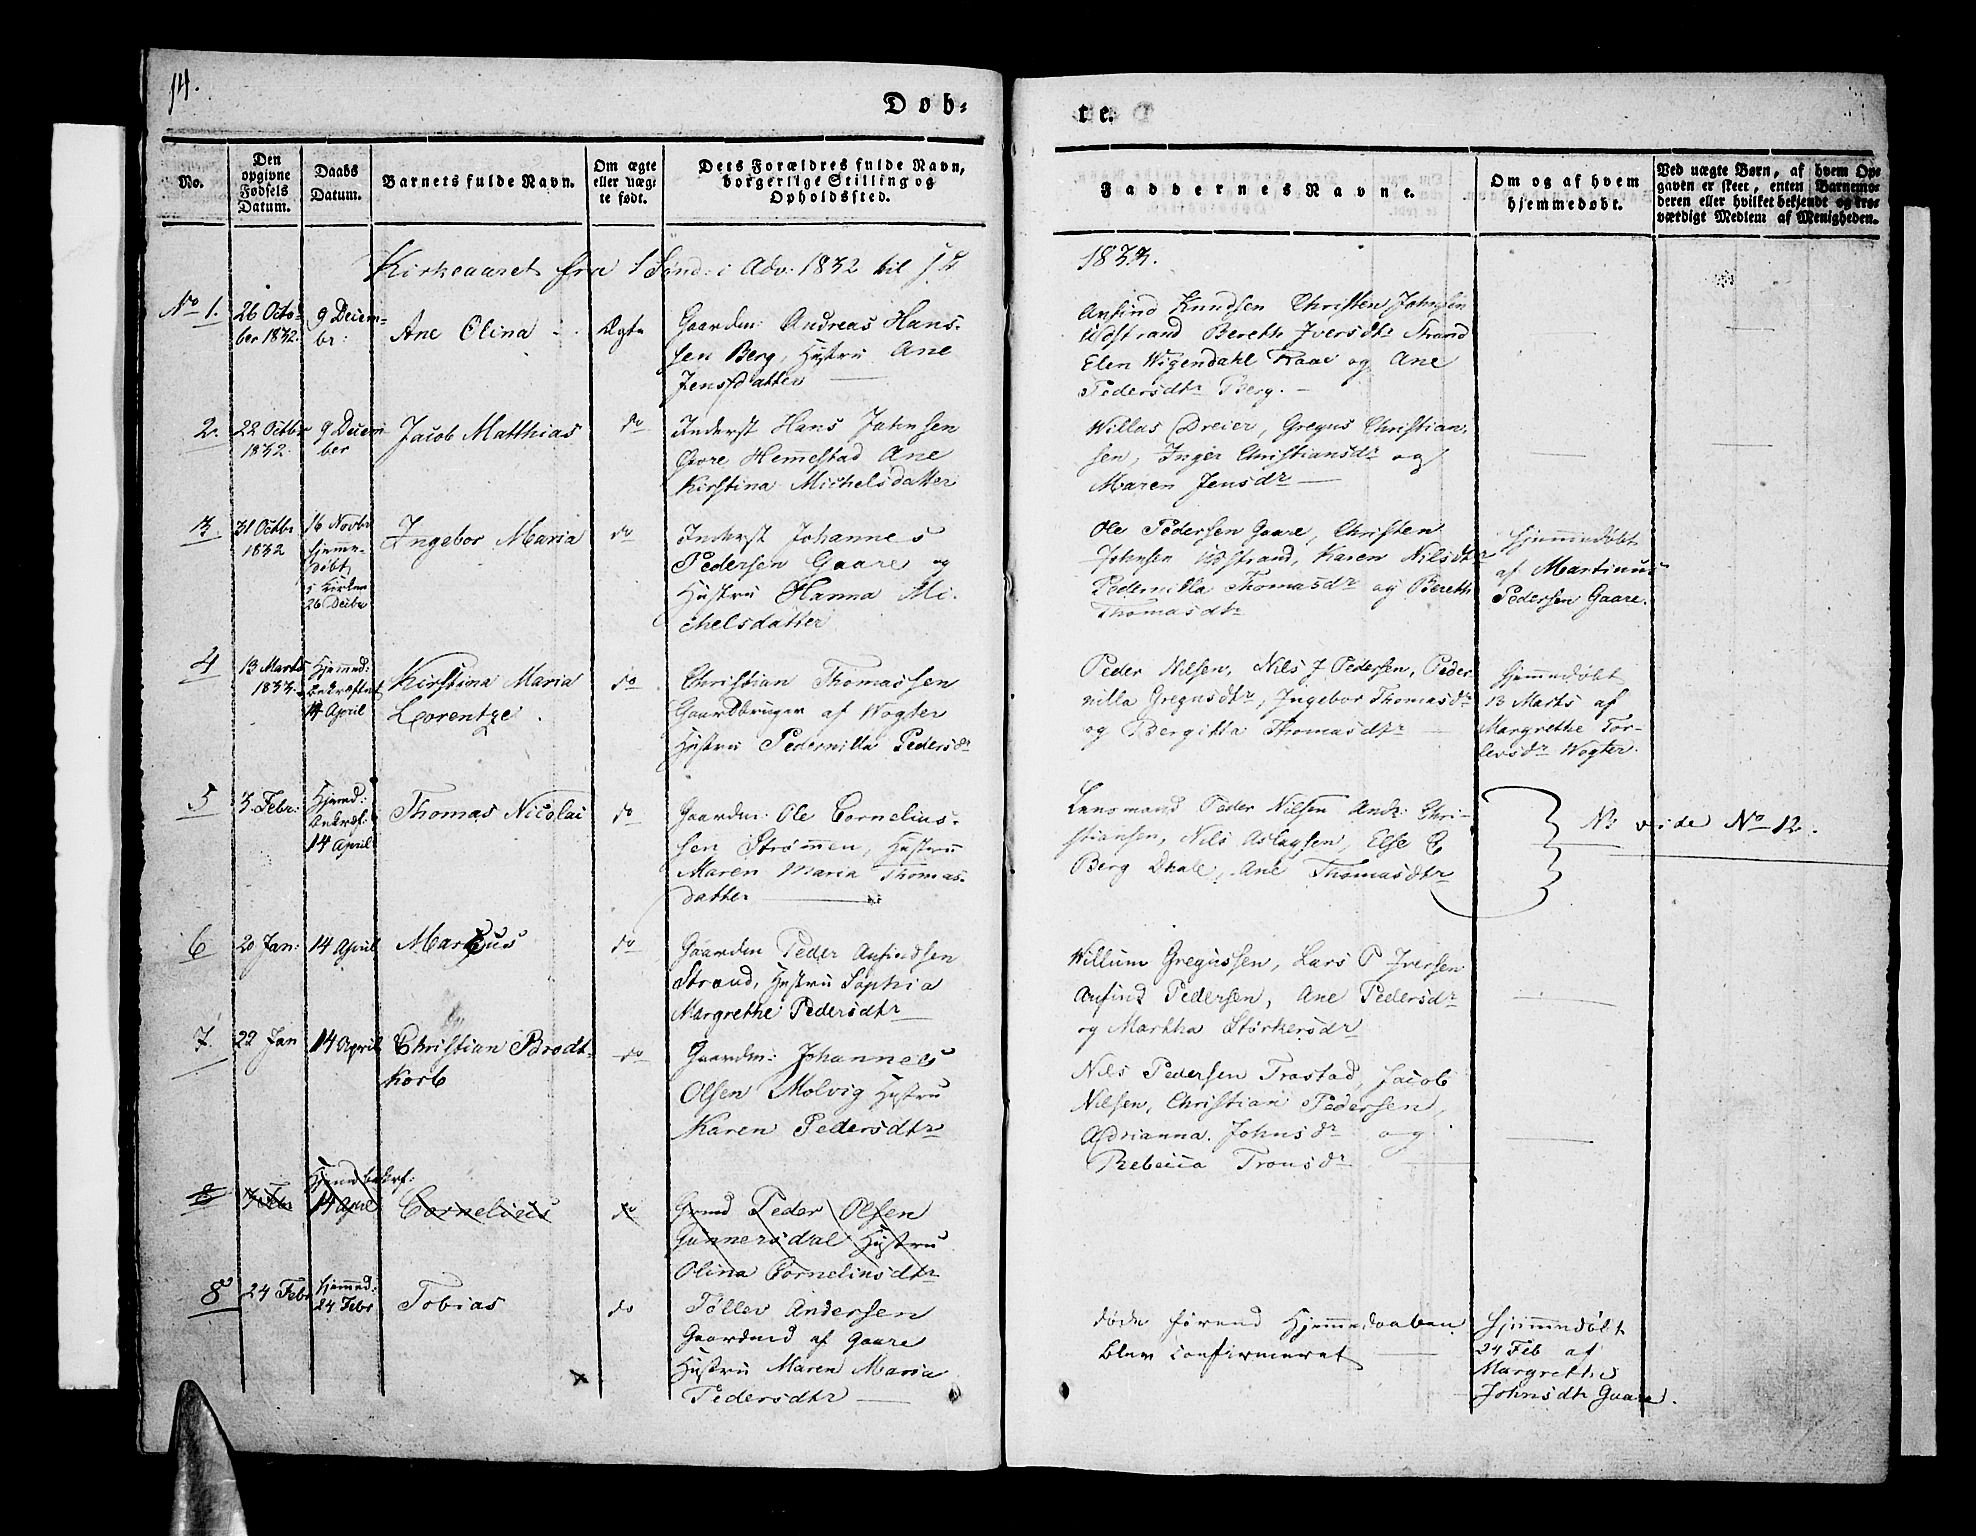 14.
Døb-
te.
No.
Den
opgivne
Fødsels
Datum.
Daabs
Datum.
Barnets fulde Navn.
Om ægte
eller uæg-
te født.
Dets Forældres fulde Navn,
borgerlige Stilling og
Opholdssted.
Faddernes Navne.
Om og af hvem
hjemmedøbt.
Ved uægte Børn, af hvem Op-
gaven er skeet, enten Barnemo-
deren eller hvilket bekjendt og tro-
værdigt Medlem af Menigheden.
Kirkeaaret fra 1 Sønd: i Adv. 1832 til
1833.
No 1.
26 Octo-
ber 1832.
9 Decem-
br:
Ane Olina
Ægte
Gaardm: Andreas Hans-
sen Berg, Hustru Ane
Jensdatter
Anfind Knudsen Christen Johnsen
Udstrand Bereth Iversdtr Strand
Elen Wigendahl Traae og Ane
Pedersdtr Berg.
2.
22 Octbr
1832
9 Decem
ber
Jacob Matthias
do
Inderst Hans Johnsen
Gore Hemmestad Ane
Kirstina Michelsdatter
Willas Dreier, Gregus Christian-
sen, Inger Christiansdr og
Maren Jensdr
3.
31 Octbr
1832
16 Novbr
hjemme-
døbt
i Kirken
26 Decbr
Ingebor Maria
do
Inderst Johannes
Pedersen Gaare og
Hustru Hanna Mi-
chelsdatter
Ole Pedersen Gaare, Christen
Johnsen Udstrand, Karen Nilsdtr
Pedernilla Thomasdr og Bereth
Thomasdtr
Hjemmedøbt
af Martinus
Pedersen Gaare.
4
13 Marts
1833.
Hjemmed:
Bekræftet
14 April
Kirstina Maria
Lorentze.
do
Christian Thomassen
Gaardbruger af Wogter
Hustru Pedernilla Pedersdr
Peder Nilsen, Nils J Pedersen, Peder
nilla Gregusdtr, Ingebor Thomasdr
og Bergitta Thomasdtr
Hjemmedøbt
13 Marts af
Margrethe Tor-
levsdr Wogter.
5
3. Febr:
Hjemd:
Bekræf:
14 April
Thomas Nicolai
do
Gaardm: Ole Cornelius-
sen Strømmen, Hustru
Maren Maria Thomas-
datter
Lensmand Peder Nilsen And: Chri-
stiansen, Nils Aslagsen, Else E
Berg Dhale, Ane Thomasdtr
N: vide No 12.
6
20 Jan:
14 April
Marcus
do
Gaardm Peder Anfindsen
Strand, Hustru Sophia
Margrethe Pedersdtr
Willum Gregussen, Lars P Iversen
Anfind Pedersen, Ane Pedersdr
og Martha Størkersdr
7.
22 Jan
14 April
Christian Brodt-
korb
do
Gaardm: Johannes
Olsen Molvig Hustru
Karen Pedersdtr
Nils Pedersen Trastad, Jacob
Nilsen, Christian Pedersen,
Adrianna Johnsdr og
Rebecca Tronsdr
8
3 Febr
Hjemd bekræf:
14 April
Cornelius
do
Peder Olsen
Gunnersdal Hustru
Olina Corneliusdtr
8
24 Febr
hjemmed:
24 Febr
Tobias
do
Tollev Andersen
Gaardmd af Gaare
Hustru Maren Maria
Pedersdtr
døde førend Hjemmedaaben
blev confirmeret
Hjemmedøbt
24 Feb af
Margrethe
Johnsdtr Gaare.